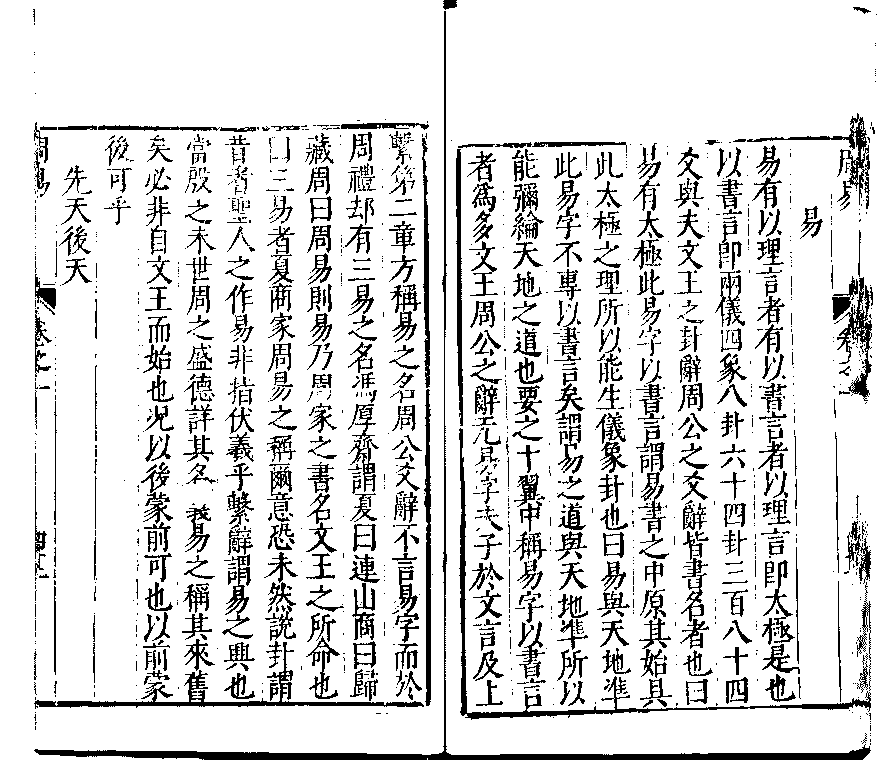 周易 卷之一
易
易有以理言者有以書言者以理言即太極是也
以書言即兩儀四象八卦六十四卦三百八十四
爻與夫文王之卦辭周公之爻辭皆書名者也曰
易有太極此易字以書言謂易書之中原其始具
此太極之理所以能生儀象卦也曰易與天地準
此易字不專以書言矣謂易之道與天地準所以
能彌綸天地之道也要之十翼中稱易字以書言
者爲多文王周公之辭无易字夫子於文言及上
繫第二章方稱易之名周公爻辭不言易字而於
周禮却有三易之名馮厚齋謂夏曰連山商曰歸
藏周曰周易則易乃周家之書名文王之所命也
曰三易者夏商家周易之稱爾意恐未然說卦謂
昔者聖人之作易非指伏羲乎繫辭謂易之興也
當殷之末世周之盛德詳其名義易之稱其來舊
矣必非自文王而始也况以後蒙前可也以前蒙
後可乎
先天後天
周易 卷之一